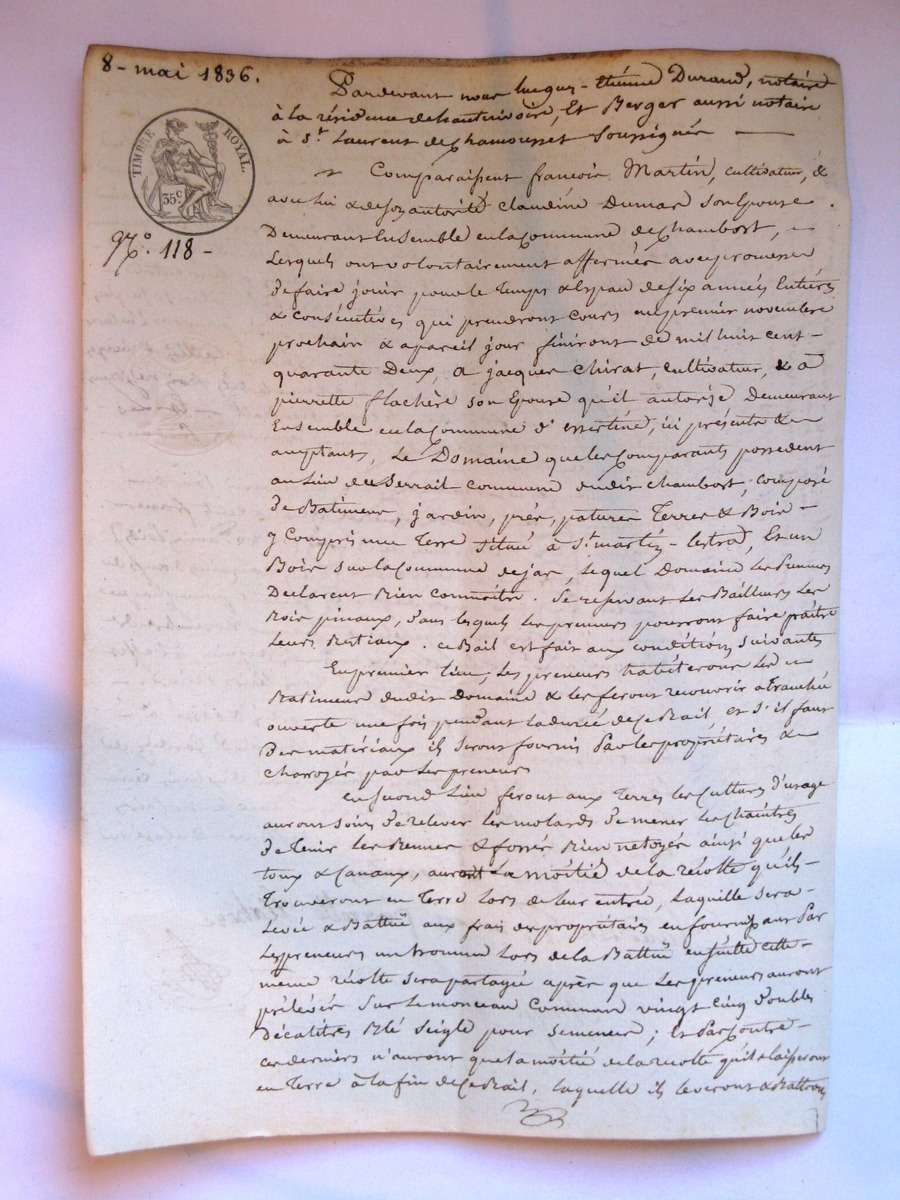 8 - mai 1836.
TIMBRE ROYAL.
35 c.
N.o 118 -
Pardevant nous Durand, notaire
à la résidence et Berger aussi notaire
à St. Laurent de chamousset soussignés
Comparaissent françois Martin, cultivateur, &
avec lui & de son autorité claudine Dumas son Epouse.
Demeurant Ensemble en la Commune de Chambost,
Lesquels ont volontairement affermés avec promesse
de faire jouir pour le Temps & Espace de six années Entières
& consécutives qui prendront cours en premier novembre
prochain & a pareil jour finiront de mil huit cent-
quarante Deux, a jacques chirat, cultivateur, & a
pierrette flachère son Epouse qu'il autorise Demeurant
Ensemble en la Commune d'essertine, ici présents &
acceptants, Le Domaine que les Comparants possedent
au Lieu du Serrail commune dudit chambost, composé
de Batiments, jardin, prés, patures Terres & Bois -
y Compris une Terre située à St. martin-lestrad, Et un
Bois sur la Commune de jas, lequel Domaine Les Preneurs
Declarent Bien Connoitre. Se reservant Les Bailleurs Les
Bois pinaux, dans lesquels Les preneurs pourront faire paitre
Leurs Bestiaux. ce Bail est fait aux conditions suivantes
En premier lieu, Les preneurs habiteront Les
Batiments dudit Domaine & les feront recouvrir a tranchée
ouverte une fois pendant la durée de ce Bail et s'il faut
Des matériaux ils seront fournis Par les propriétaires &
charoyés par Les preneurs
En second Lieu feront aux Terres les cultures d'usage
auront soin de relever les molards de mener Les chaintres
de Tenir Les & fossés Bien netoyés ainsi que les
& Canaux, auront La moitié de la récolte qu'ils
Trouveront en Terre lors de leur entrée, Laquelle sera
Levée & Battuë aux frais des propriétaires en fournissant Par
Les preneurs un homme Lors de la Battuë ensuitte cette
même récolte sera partagée après que Les preneurs auront
prélévés Sur Le monceau Commun vingt cinq doubles
Décalitres Blé Seigle pour semence; Et Par contre
ces derniers n'auront que la moitié de la récolte qu'ils laisseront
en Terre à la fin de ce Bail, laquelle ils leveront & Battront